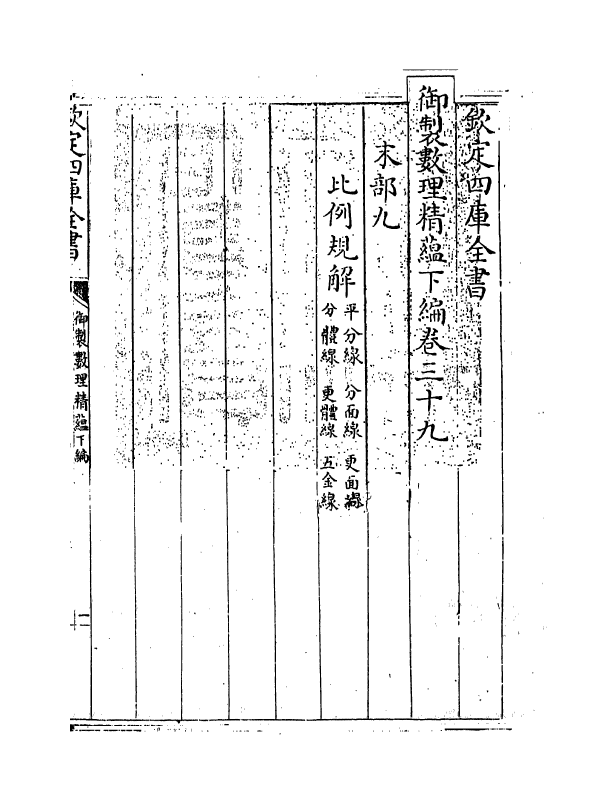 欽定四庫全書
御製數理精蘊下編卷三十九
末部九
比例規解
平分線 分面線 更面線
分體線 更體線 五金線
欽定四庫全書
御製數理精蘊下編
一